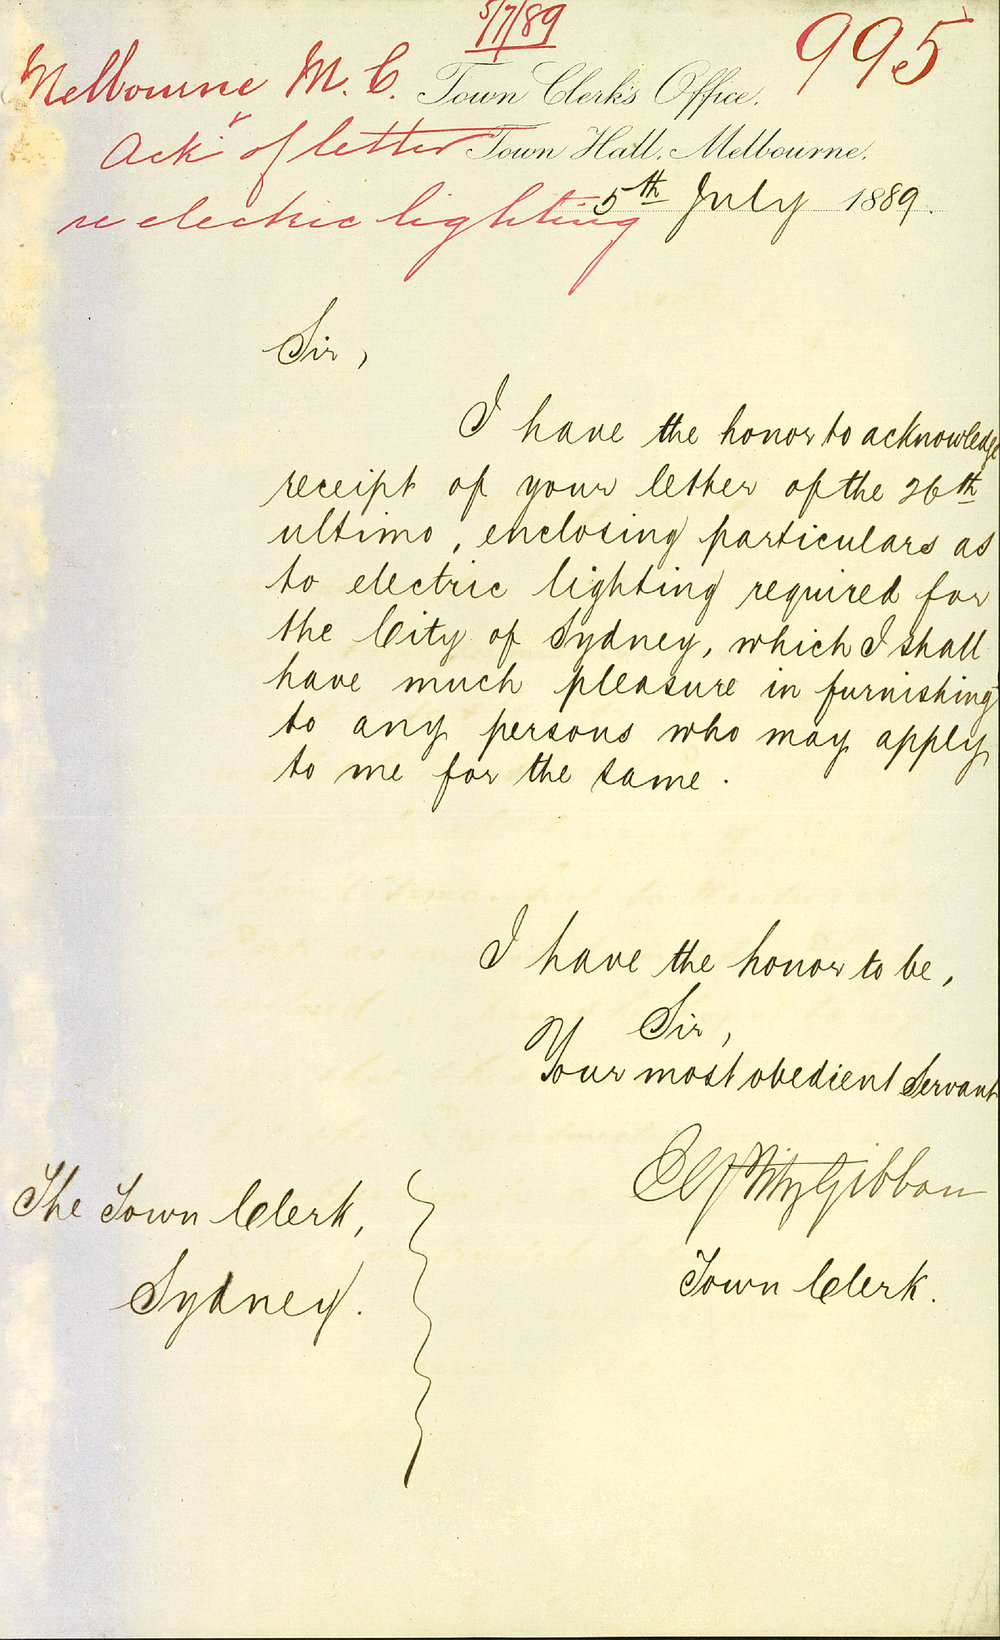 5/7/89
995
Melbourne M. C.
Ackt of letter
re electric lighting
Town Clerk's Office,
Town Hall, Melbourne,
5th July 1889.
Sir,
I have the honor to acknowledge
receipt of your letter of the 26th
ultimo, enclosing particulars as
to electric lighting required for
the City of Sydney, which I shall
have much pleasure in furnishing
to any persons who may apply
to me for the same.
I have the honor to be,
Sir,
Your most obedient Servant
FitzGibbon
Town Clerk.
The Town Clerk,
Sydney.